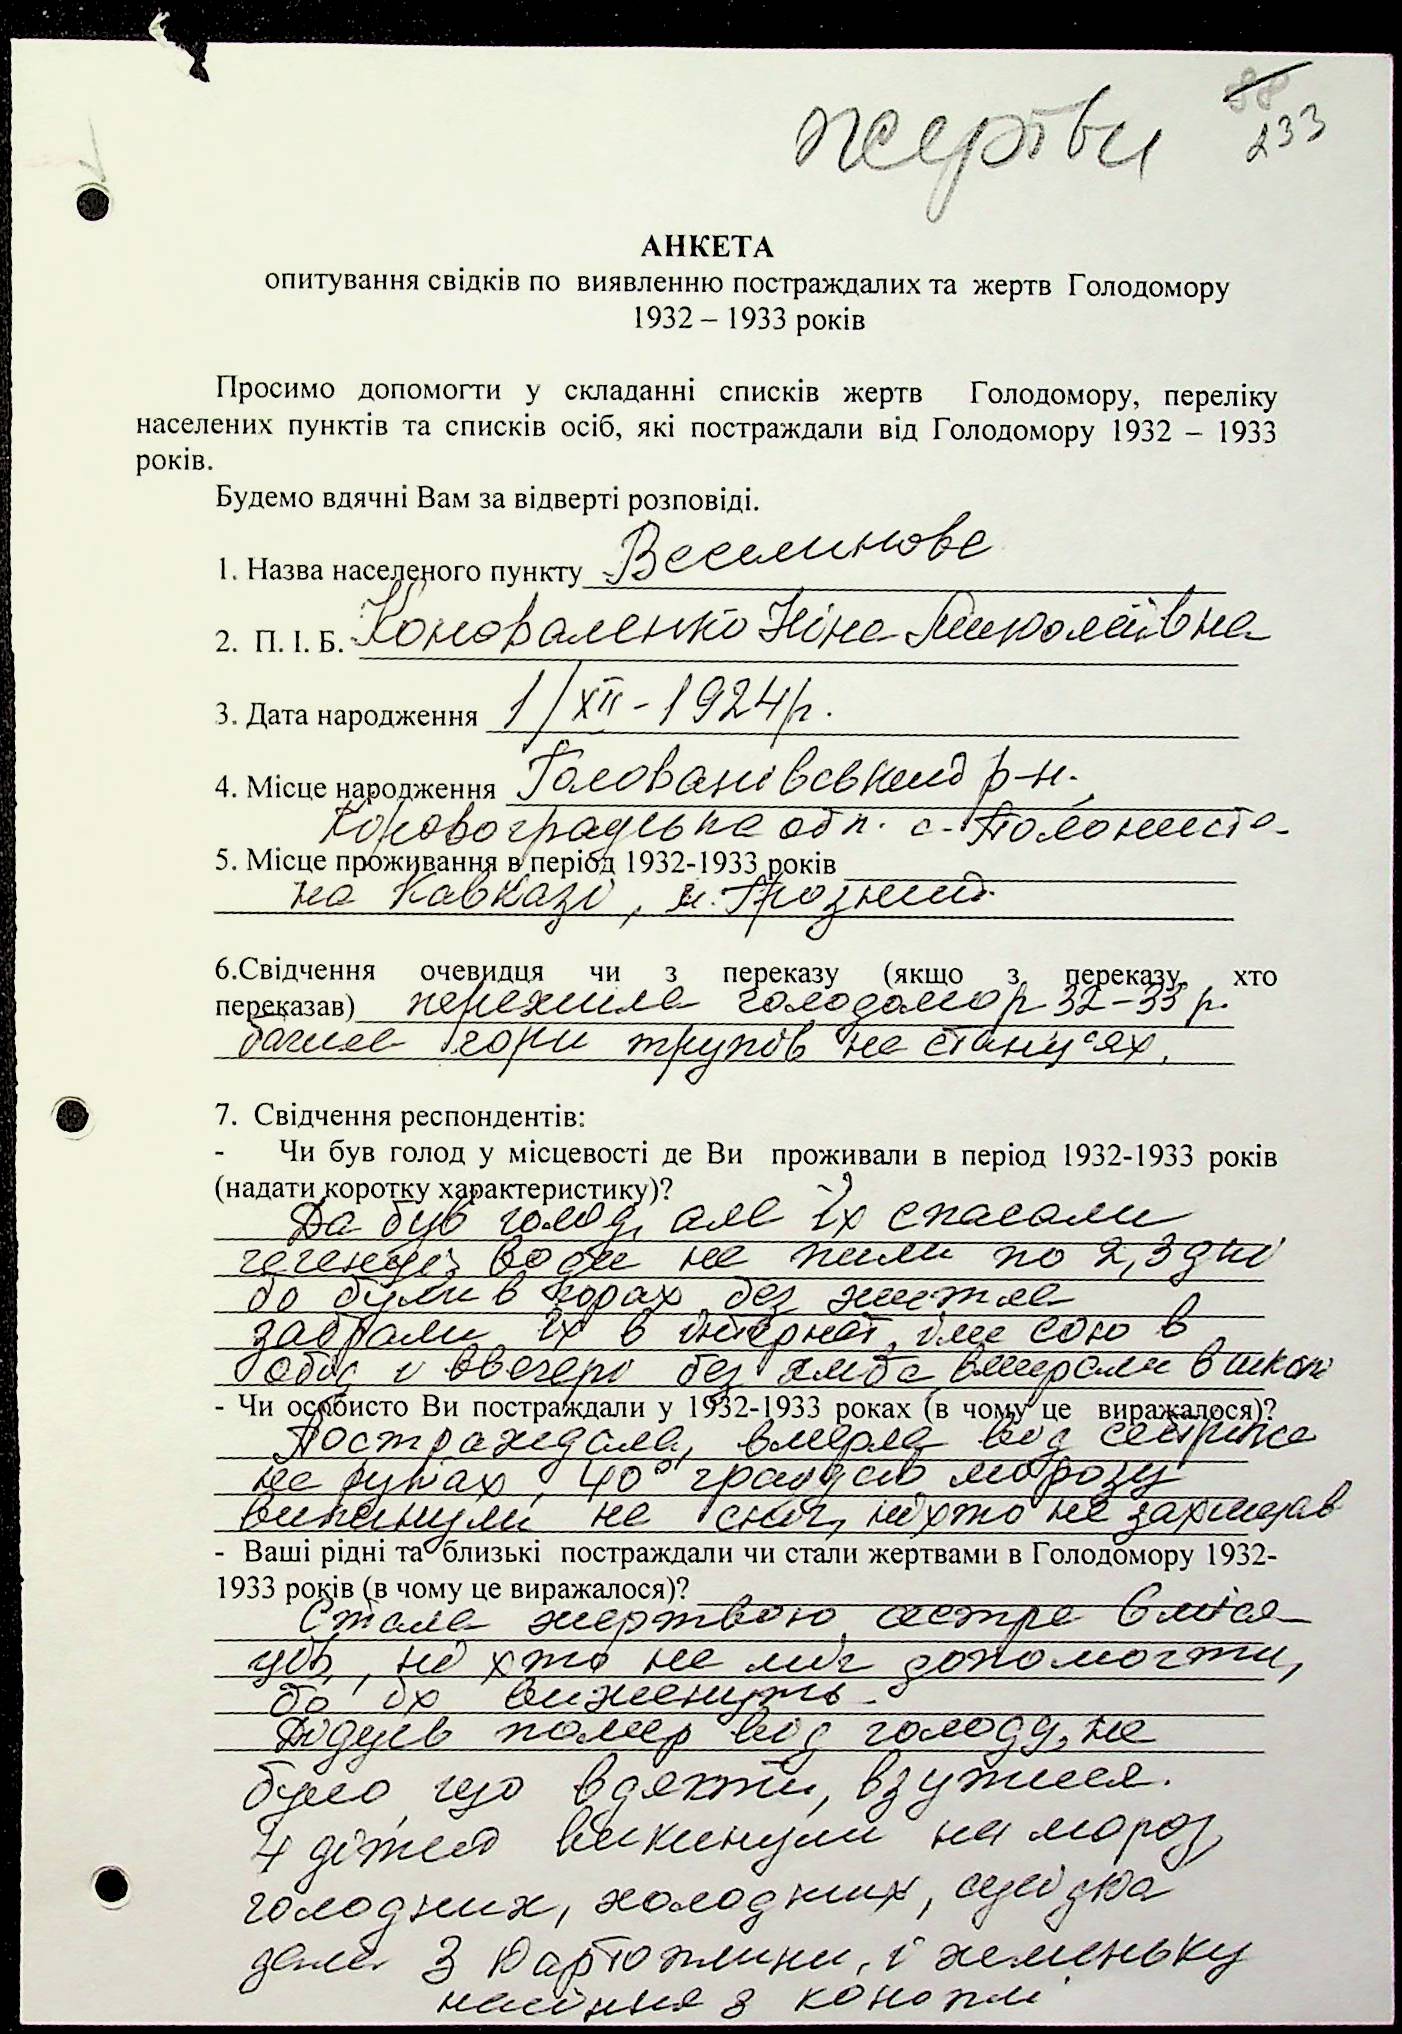 жертви
88
233
АНКЕТА
опитування свідків по виявленню постраждалих та жертв Голодомору
1932 – 1933 років
Просимо допомогти у складанні списків жертв Голодомору, переліку
населених пунктів та списків осіб, які постраждали від Голодомору 1932 – 1933
років.
Будемо вдячні Вам за відверті розповіді.
1. Назва населеного пункту Веселинове
2. П. І. Б. Коноваленко Ніна Миколаївна
3. Дата народження 1/XII - 1924 р.
4. Місце народження Голованівський р-н.
Кіровоградська обл. с.
5. Місце проживання в період 1932-1933 років
на Кавказі, м. Грозний
6.Свідчення очевидця чи з переказу (якщо з переказу, хто
переказав) пережила голодомор 32-33 р.
бачила гори трупів на станціях.
7. Свідчення респондентів:
- Чи був голод у місцевості де Ви проживали в період 1932-1933 років
(надати коротку характеристику)?
Да був голод, але їх спасали
чеченці води не пили по 2,3 дні
бо були в горах без житла
забрали їх в інтернат, їли сою в
обід і ввечері без хліба вмирали в школі
- Чи особисто Ви постраждали у 1932-1933 роках (в чому це виражалося)?
Постраждала, вмерла від сестричка
на руках, 40° градусів морозу
викинули на сніг, ніхто не захищав
- Ваші рідні та близькі постраждали чи стали жертвами в Голодомору 1932-
1933 років (в чому це виражалося)?
Стала жертвою сестра 6 міся-
ців, ніхто не міг допомогти,
бо їх виженуть.
Дідусь помер від голоду, не
було що вдягти, взутися.
4 дітей викинули на мороз
голодних, холодних, сусідка
дала 3 картоплини, і жменьку
насіння з коноплі